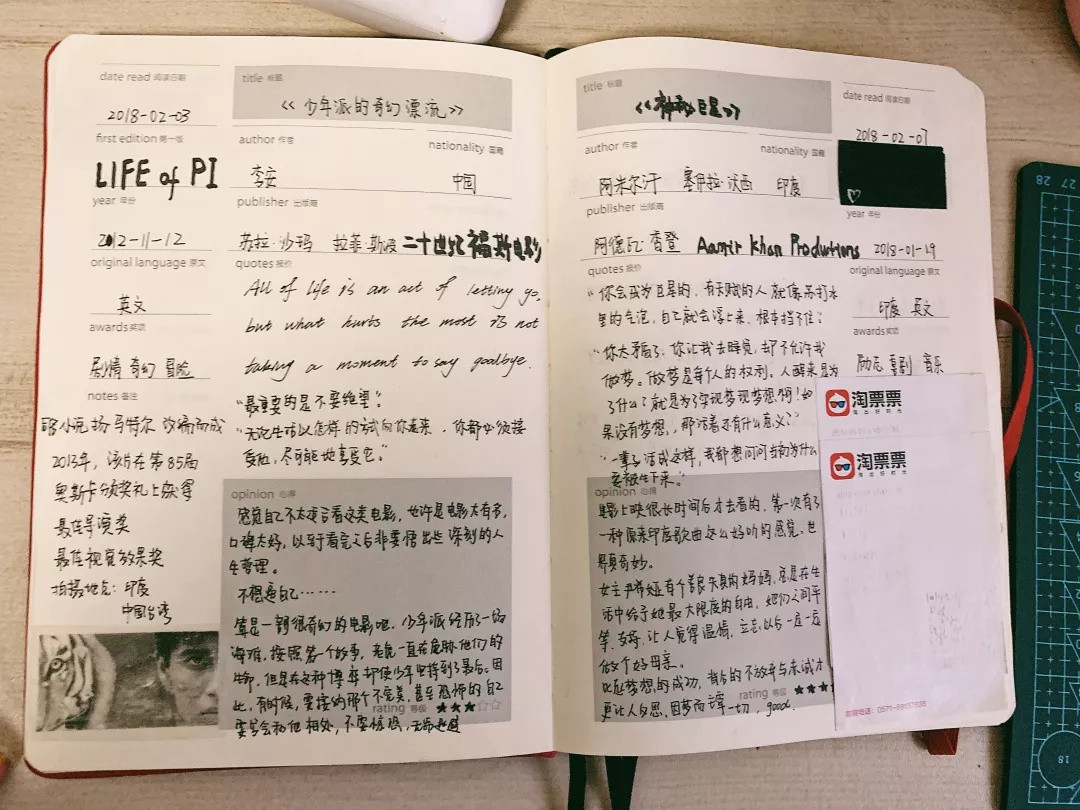 date read 阅读日期
2018-02-03
first edition 第一版
LIFE of PI
year 年份
2012-11-12
original language 原文
英文
awards 奖项
剧情 奇幻 冒险
notes 备注
小说 扬·马特尔 改编而成
2013年，该片在第85届
奥斯卡颁奖礼上获得
最佳导演奖
最佳视觉效果奖
拍摄地点：印度
中国台湾
title 标题
《少年派的奇幻漂流》
author 作者
nationality 国籍
李安
中国
publisher 出版商
苏拉·沙玛 拉菲·斯波 二十世纪福斯电影
quotes 报价
All of life is an act of letting go,
but what hurts the most is not
taking a moment to say goodbye.
“最重要的是不要绝望”。
“无论生活以怎样的方式向你走来，你都必须接
受它，尽可能地享受它。”
opinion 心得
感觉自己不太适合看这类电影，也许是电影太有名，
口碑太好，以至于看完之后非要悟出些深刻的人
生哲理。
不想逼自己……
算是一部很奇幻的电影吧，少年派经历了一场
海难，按照第一个故事，老虎一直在威胁他们的
生命，但是在这种博弈却使少年坚持到了最后。因
此，有时候，要接纳那个不完美，甚至恐怖的自己
要学会和他相处，不要惊恐，无需逃避
rating 等级 ★★★☆☆
title 标题
《神秘巨星》
author 作者
nationality 国籍
阿米尔汗 塞伊拉·沃西 印度
publisher 出版商
阿德瓦·香登 Aamir Khan Productions
quotes 报价
“你会成为巨星的，有天赋的人就像苏打水
里的气泡，自己就会浮上来，根本挡不住”。
“你太矛盾了，你让我去睡觉，却不允许我
做梦。做梦是每个人的权利。人醒来是为
了什么？就是为了实现梦想啊！如
果没有梦想，那活着还有什么意义？”
“一辈子活成这样，我都想问问当初为什么
要被生下来。”
opinion 心得
电影上映很长时间后才去看的，第一次有了
一种原来印度歌曲这么好听的感觉，世
界真奇妙。
女主尹希娅有个善良天真的妈妈，总是在生
活中给予她最大限度的自由，她们之间平
等，支持，让人觉得温情，立志以后一定一定
做个好母亲。
比起梦想的成功，背后的不放弃与未诚才
更让人反思，因梦而谭一切，good.
rating 等级 ★★★
date read 阅读日期
2018-02-07
year 年份
2018-01-19
original language 原文
印度 英文
awards 奖项
励志 喜剧 音乐
淘票票
淘出好时光
淘票票
淘出好时光
28
27
18